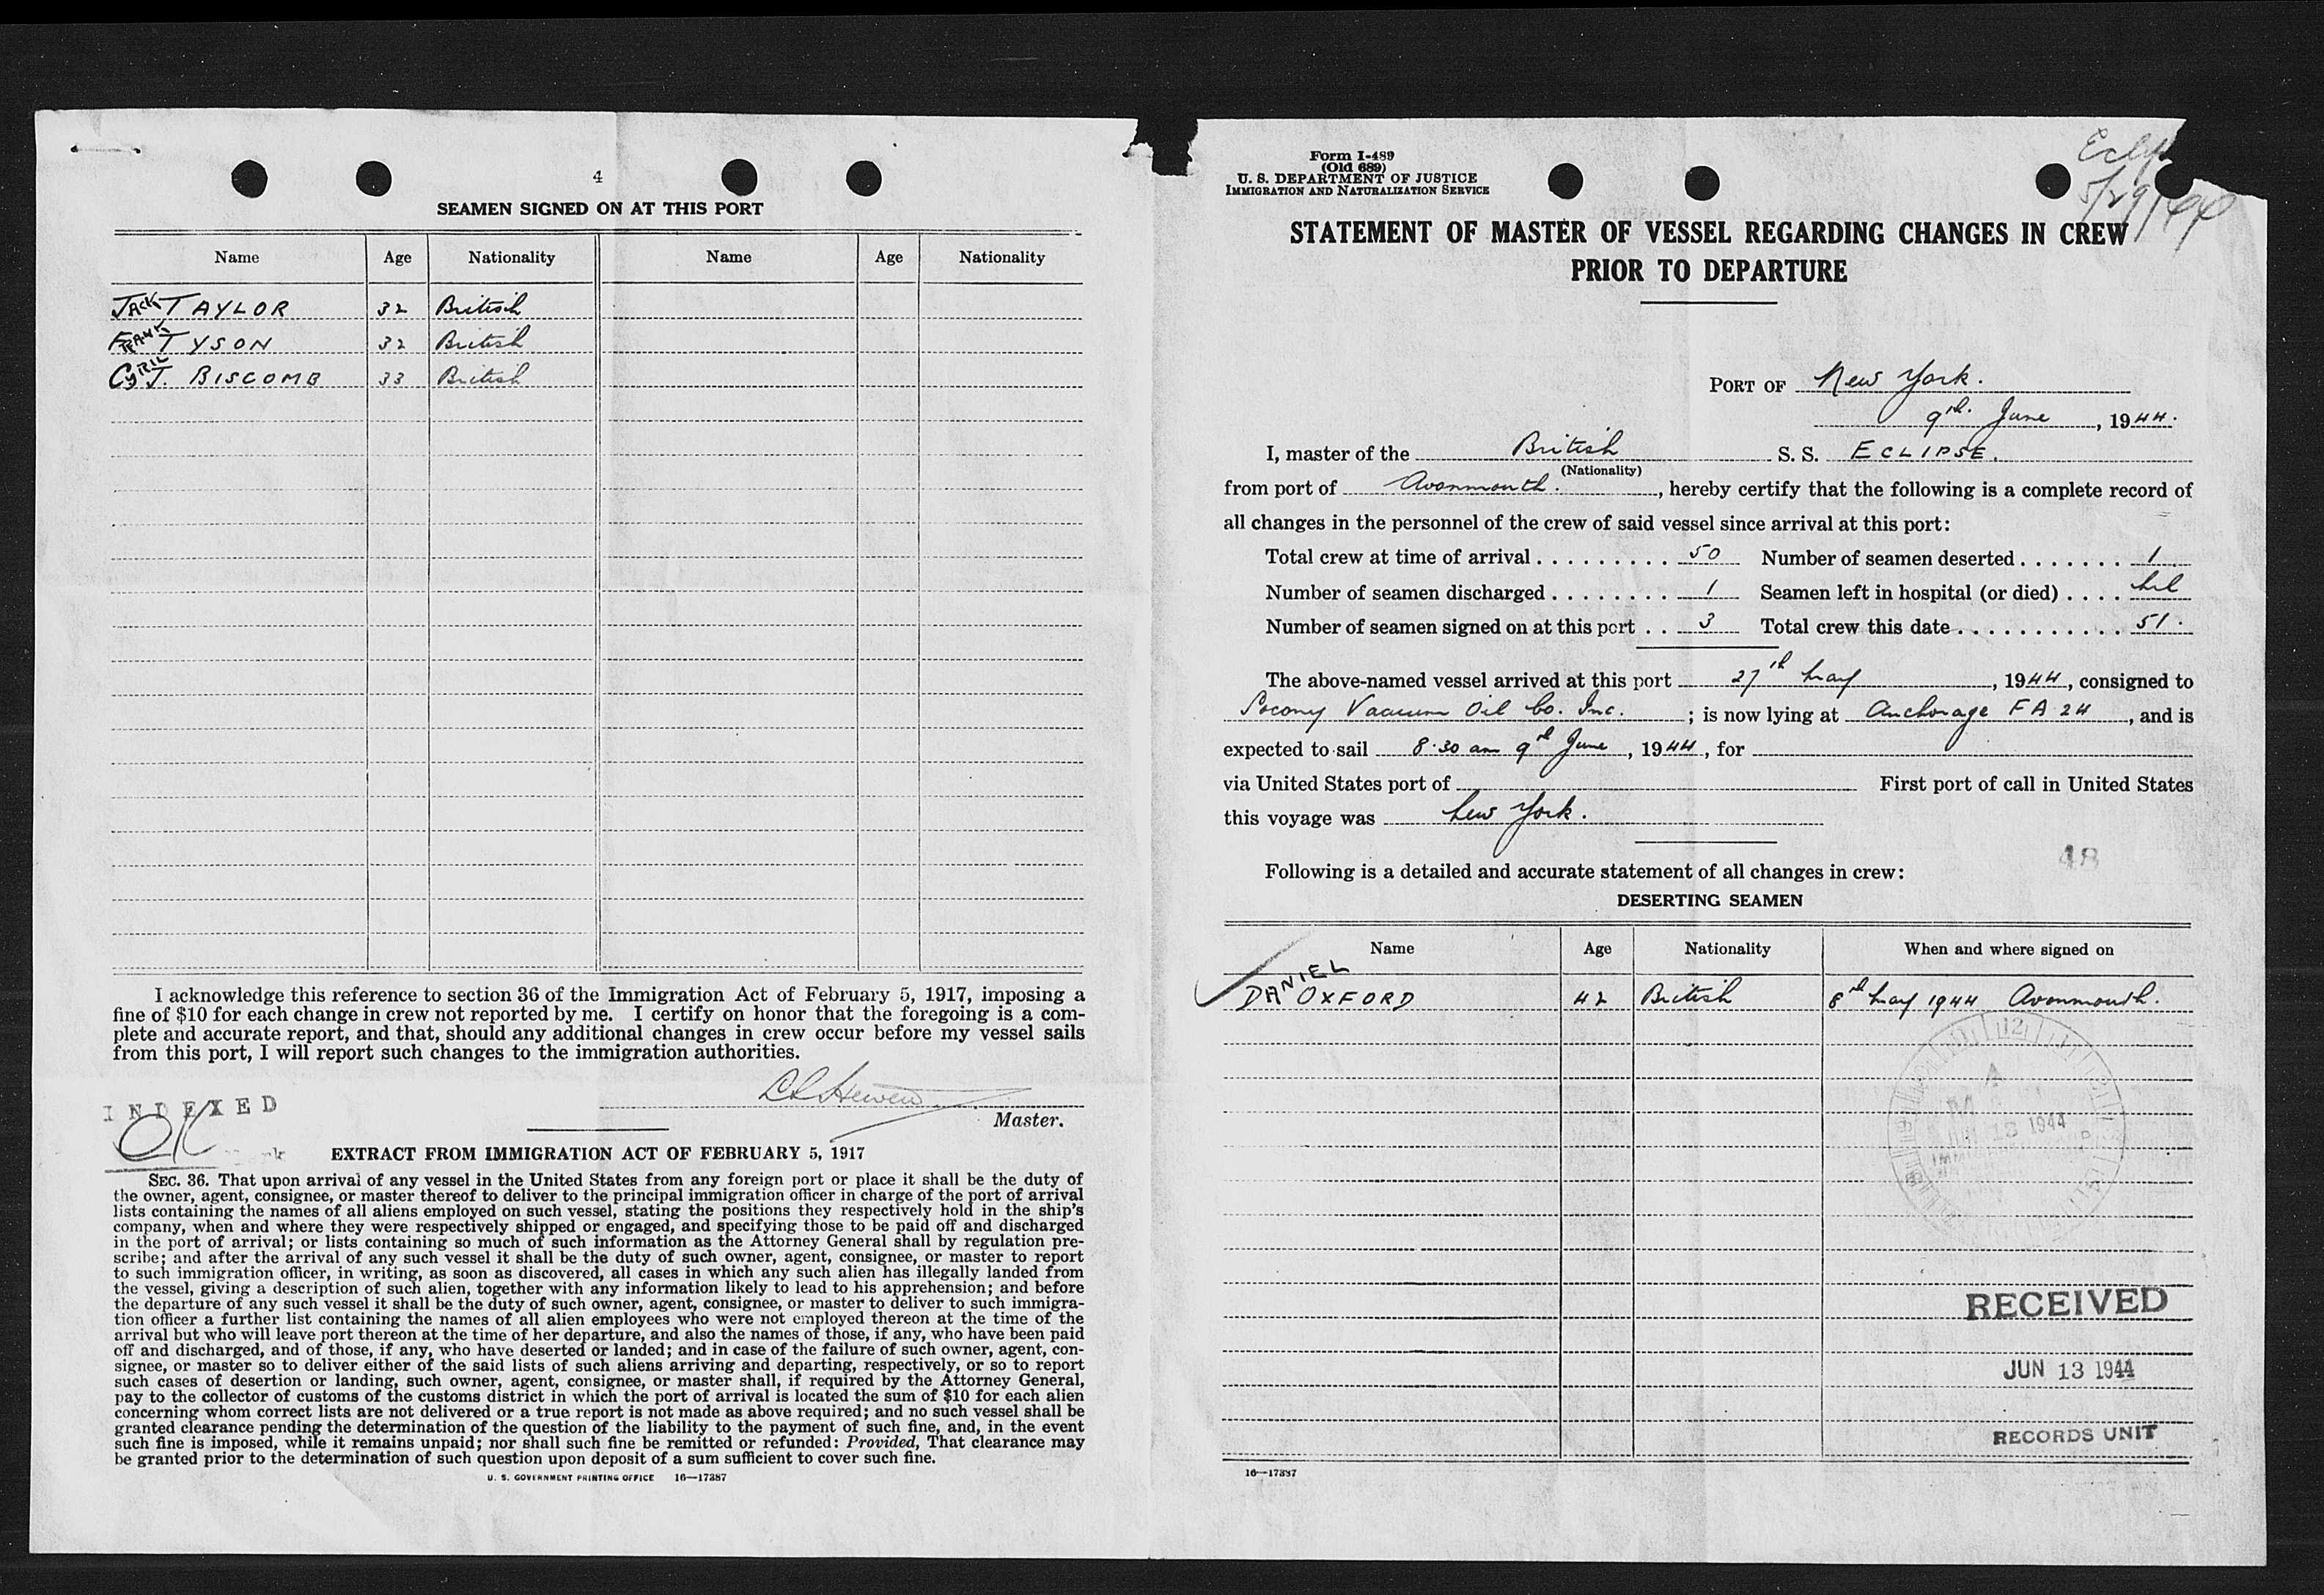 4
SEAMEN SIGNED ON AT THIS PORT
Name Age Nationality Name Age Nationality
JACK TAYLOR 32 British
FRANK TYSON 32 British
CYRIL J. BISCOMB 33 British
I acknowledge this reference to section 36 of the Immigration Act of February 5, 1917, imposing a
fine of $10 for each change in crew not reported by me. I certify on honor that the foregoing is a com-
plete and accurate report, and that, should any additional changes in crew occur before my vessel sails
from this port, I will report such changes to the immigration authorities.
INDEXED
OK
Master.
EXTRACT FROM IMMIGRATION ACT OF FEBRUARY 5, 1917
SEC. 36. That upon arrival of any vessel in the United States from any foreign port or place it shall be the duty of
the owner, agent, consignee, or master thereof to deliver to the principal immigration officer in charge of the port of arrival
lists containing the names of all aliens employed on such vessel, stating the positions they respectively hold in the ship's
company, when and where they were respectively shipped or engaged, and specifying those to be paid off and discharged
in the port of arrival; or lists containing so much of such information as the Attorney General shall by regulation pre-
scribe; and after the arrival of any such vessel it shall be the duty of such owner, agent, consignee, or master to report
to such immigration officer, in writing, as soon as discovered, all cases in which any such alien has illegally landed from
the vessel, giving a description of such alien, together with any information likely to lead to his apprehension; and before
the departure of any such vessel it shall be the duty of such owner, agent, consignee, or master to deliver to such immigra-
tion officer a further list containing the names of all alien employees who were not employed thereon at the time of the
arrival but who will leave port thereon at the time of her departure, and also the names of those, if any, who have been paid
off and discharged, and of those, if any, who have deserted or landed; and in case of the failure of such owner, agent, con-
signee, or master so to deliver either of the said lists of such aliens arriving and departing, respectively, or so to report
such cases of desertion or landing, such owner, agent, consignee, or master shall, if required by the Attorney General,
pay to the collector of customs of the customs district in which the port of arrival is located the sum of $10 for each alien
concerning whom correct lists are not delivered or a true report is not made as above required; and no such vessel shall be
granted clearance pending the determination of the question of the liability to the payment of such fine, and, in the event
such fine is imposed, while it remains unpaid; nor shall such fine be remitted or refunded: Provided, That clearance may
be granted prior to the determination of such question upon deposit of a sum sufficient to cover such fine.
U. S. GOVERNMENT PRINTING OFFICE 16—17387
Form I-489
(Old 689)
U. S. DEPARTMENT OF JUSTICE
IMMIGRATION AND NATURALIZATION SERVICE
5/29/44
STATEMENT OF MASTER OF VESSEL REGARDING CHANGES IN CREW
PRIOR TO DEPARTURE
PORT OF New York.
9th June, 1944.
I, master of the British S. S. ECLIPSE.
(Nationality)
from port of Avonmouth., hereby certify that the following is a complete record of
all changes in the personnel of the crew of said vessel since arrival at this port:
Total crew at time of arrival . . . . . . . . . 50 Number of seamen deserted . . . . . . . 1
Number of seamen discharged . . . . . . . . 1 Seamen left in hospital (or died) . . . . Nil
Number of seamen signed on at this port . . 3 Total crew this date . . . . . . . . . . . 51.
The above-named vessel arrived at this port 27th May, 1944, consigned to
Socony Vacuum Oil Co. Inc. ; is now lying at Anchorage FA 24, and is
expected to sail 8.30 am 9th June, 1944, for
via United States port of First port of call in United States
this voyage was New York.
48
Following is a detailed and accurate statement of all changes in crew:
DESERTING SEAMEN
Name Age Nationality When and where signed on
DANIEL OXFORD 42 British 8th May 1944 Avonmouth.
RECEIVED
JUN 13 1944
RECORDS UNIT
16—17387